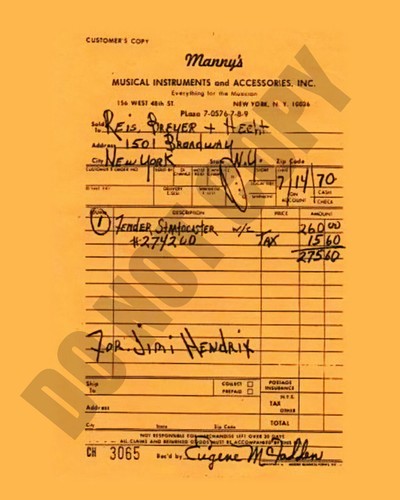 CUSTOMER'S COPY
Manny's
MUSICAL INSTRUMENTS and ACCESSORIES, INC.
Everything for the Musician
156 WEST 48th ST. NEW YORK, N. Y. 10036
PLaza 7-0576-7-8-9
Sold To Reis, Breyer + Hecht
Address 1501 Broadway
City New York State N.Y. Zip Code
7/14/70
ON ACCOUNT
CASH
CHECK
DESCRIPTION PRICE AMOUNT
1 Fender Stratocaster w/c 260 00
#274200 TAX 15 60
275 60
For. Jimi Hendrix
Ship To COLLECT PREPAID POSTAGE INSURANCE
Address TAX N.Y.S. OTHER
City State Zip Code TOTAL
NOT RESPONSIBLE FOR MERCHANDISE LEFT OVER 30 DAYS
ALL CLAIMS AND RETURNED GOODS MUST BE ACCOMPANIED BY THIS
CH 3065 Rec'd by Eugene McFadden
DO NOT COPY